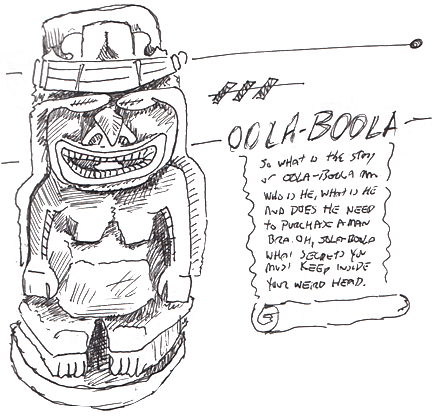 OOLA-BOOLA
So what is the story
of OOLA-BOOLA man
WHO IS HE, WHAT IS HE
AND DOES HE NEED
TO PURCHASE A MAN
BRA. OH, OOLA-BOOLA
WHAT SECRETS YOU
MUST KEEP INSIDE
YOUR WEIRD HEAD.